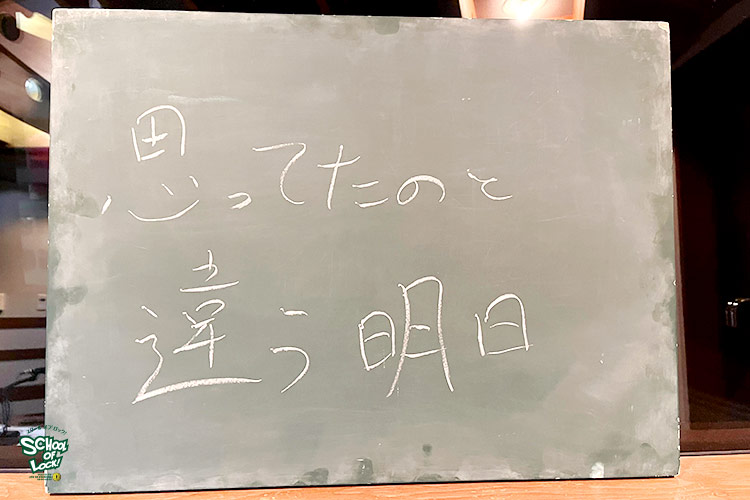 思ってたのと
違う明日
SCHOOL
OF
LOCK!